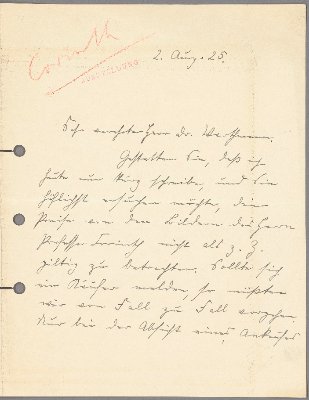 Corinth
AUSSTELLUNG
2. Aug. 25.
Sehr verehrter Herr Dr. Wartmann.
Gestatten Sie, daß ich
heute nur kurz schreibe, und Sie
höflichst ersuchen möchte, die
Preise von den Bildern des Herrn
Professor Corinth nicht als z. Z.
giltig zu betrachten. Sollte sich
ein Käufer melden, so müßten
wir von Fall zu Fall vorgehen
Nur bei der Absicht eines Ankaufes